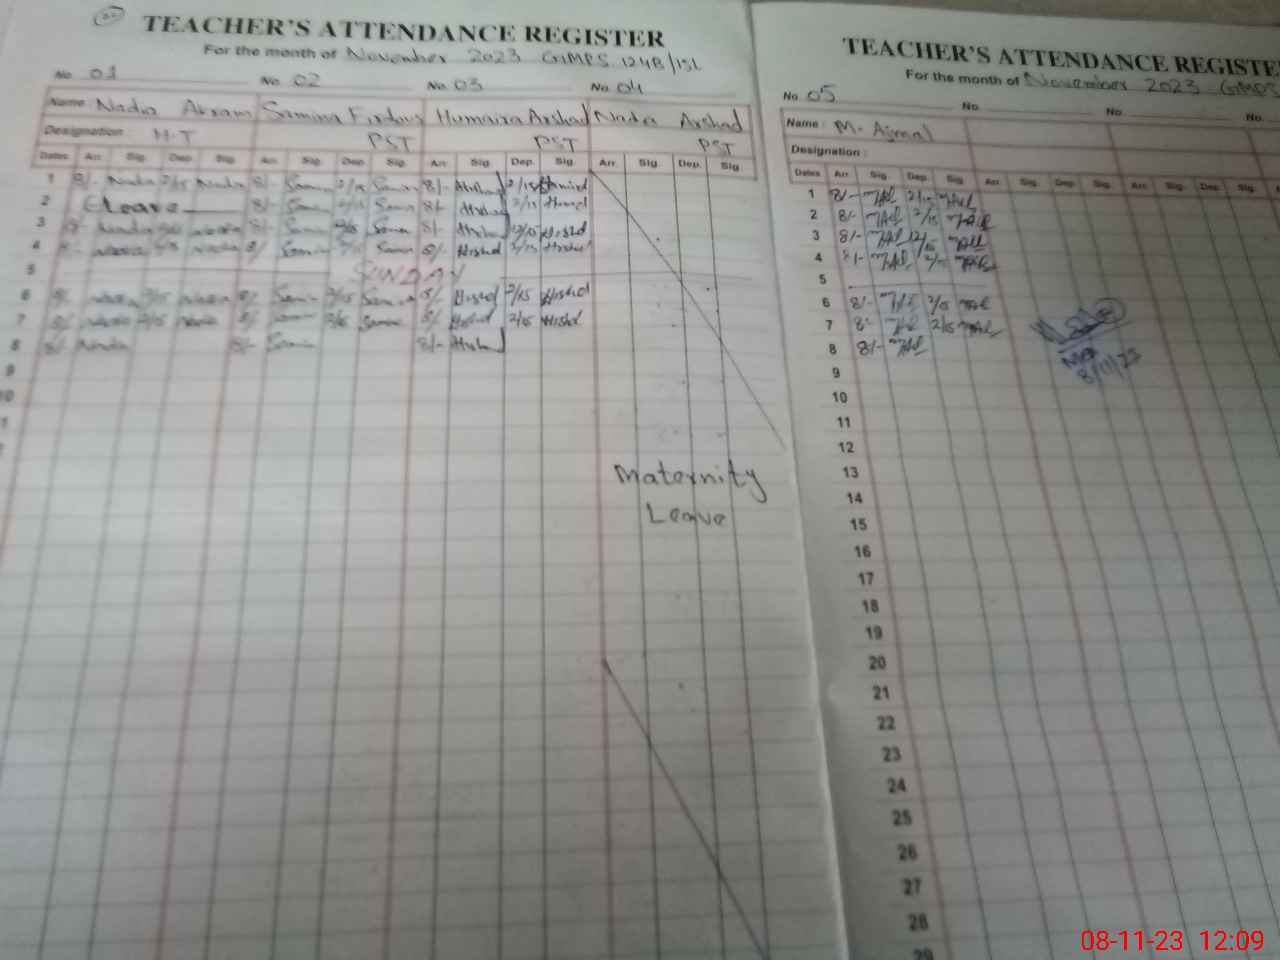 TEACHER'S ATTENDANCE REGISTER
For the month of November 2023 GMPS 124B/15L
No. 01 No. 02 No. 03 No. 04
Name: Nadia Akram Samina Firdous Humaira Arshad Nadia Arshad
Designation: H.T PST PST PST
Dates Arr. Sig. Dep. Sig. Arr. Sig. Dep. Sig. Arr. Sig. Dep. Sig. Arr. Sig. Dep. Sig.
1 8/- Nadia 2/15 Nadia 8/- Samin 2/15 Samin 8/- Arshad 2/15
2 C Leave 8/- Samin 2/15 Samin 8/- Arshad 2/15
3 8/- Nadia Nadia 8/- Samin Samin 8/- Arshad 12/15 Arshad
4 8/- Nadia Nadia 8/- Samin Samin 8/- Arshad 2/15 Arshad
5 SUNDAY
6 8/- Nadia 2/15 Nadia 8/- Samin 2/15 Samin 8/- Arshad 2/15 Arshad
7 8/- Nadia 2/15 Nadia 8/- Samin 2/15 Samin 8/- Arshad 2/15 Arshad
8 8/- Nadia 8/- Samin 8/- Arshad
9
10
Maternity
Leave
TEACHER'S ATTENDANCE REGISTE
For the month of November 2023 GMPS
No. 05 No. No. No.
Name: M. Ajmal
Designation:
Dates Arr. Sig. Dep. Sig. Arr. Sig. Dep. Sig. Arr. Sig. Dep. Sig. Arr.
1 8/- 2/15
2 8/- 2/15
3 8/- 12/15
4 8/-
5
6 8/- 2/15
7 8/- 2/15
8 8/-
8/11/23
9
10
11
12
13
14
15
16
17
18
19
20
21
22
23
24
25
26
27
28
29
08-11-23 12:09